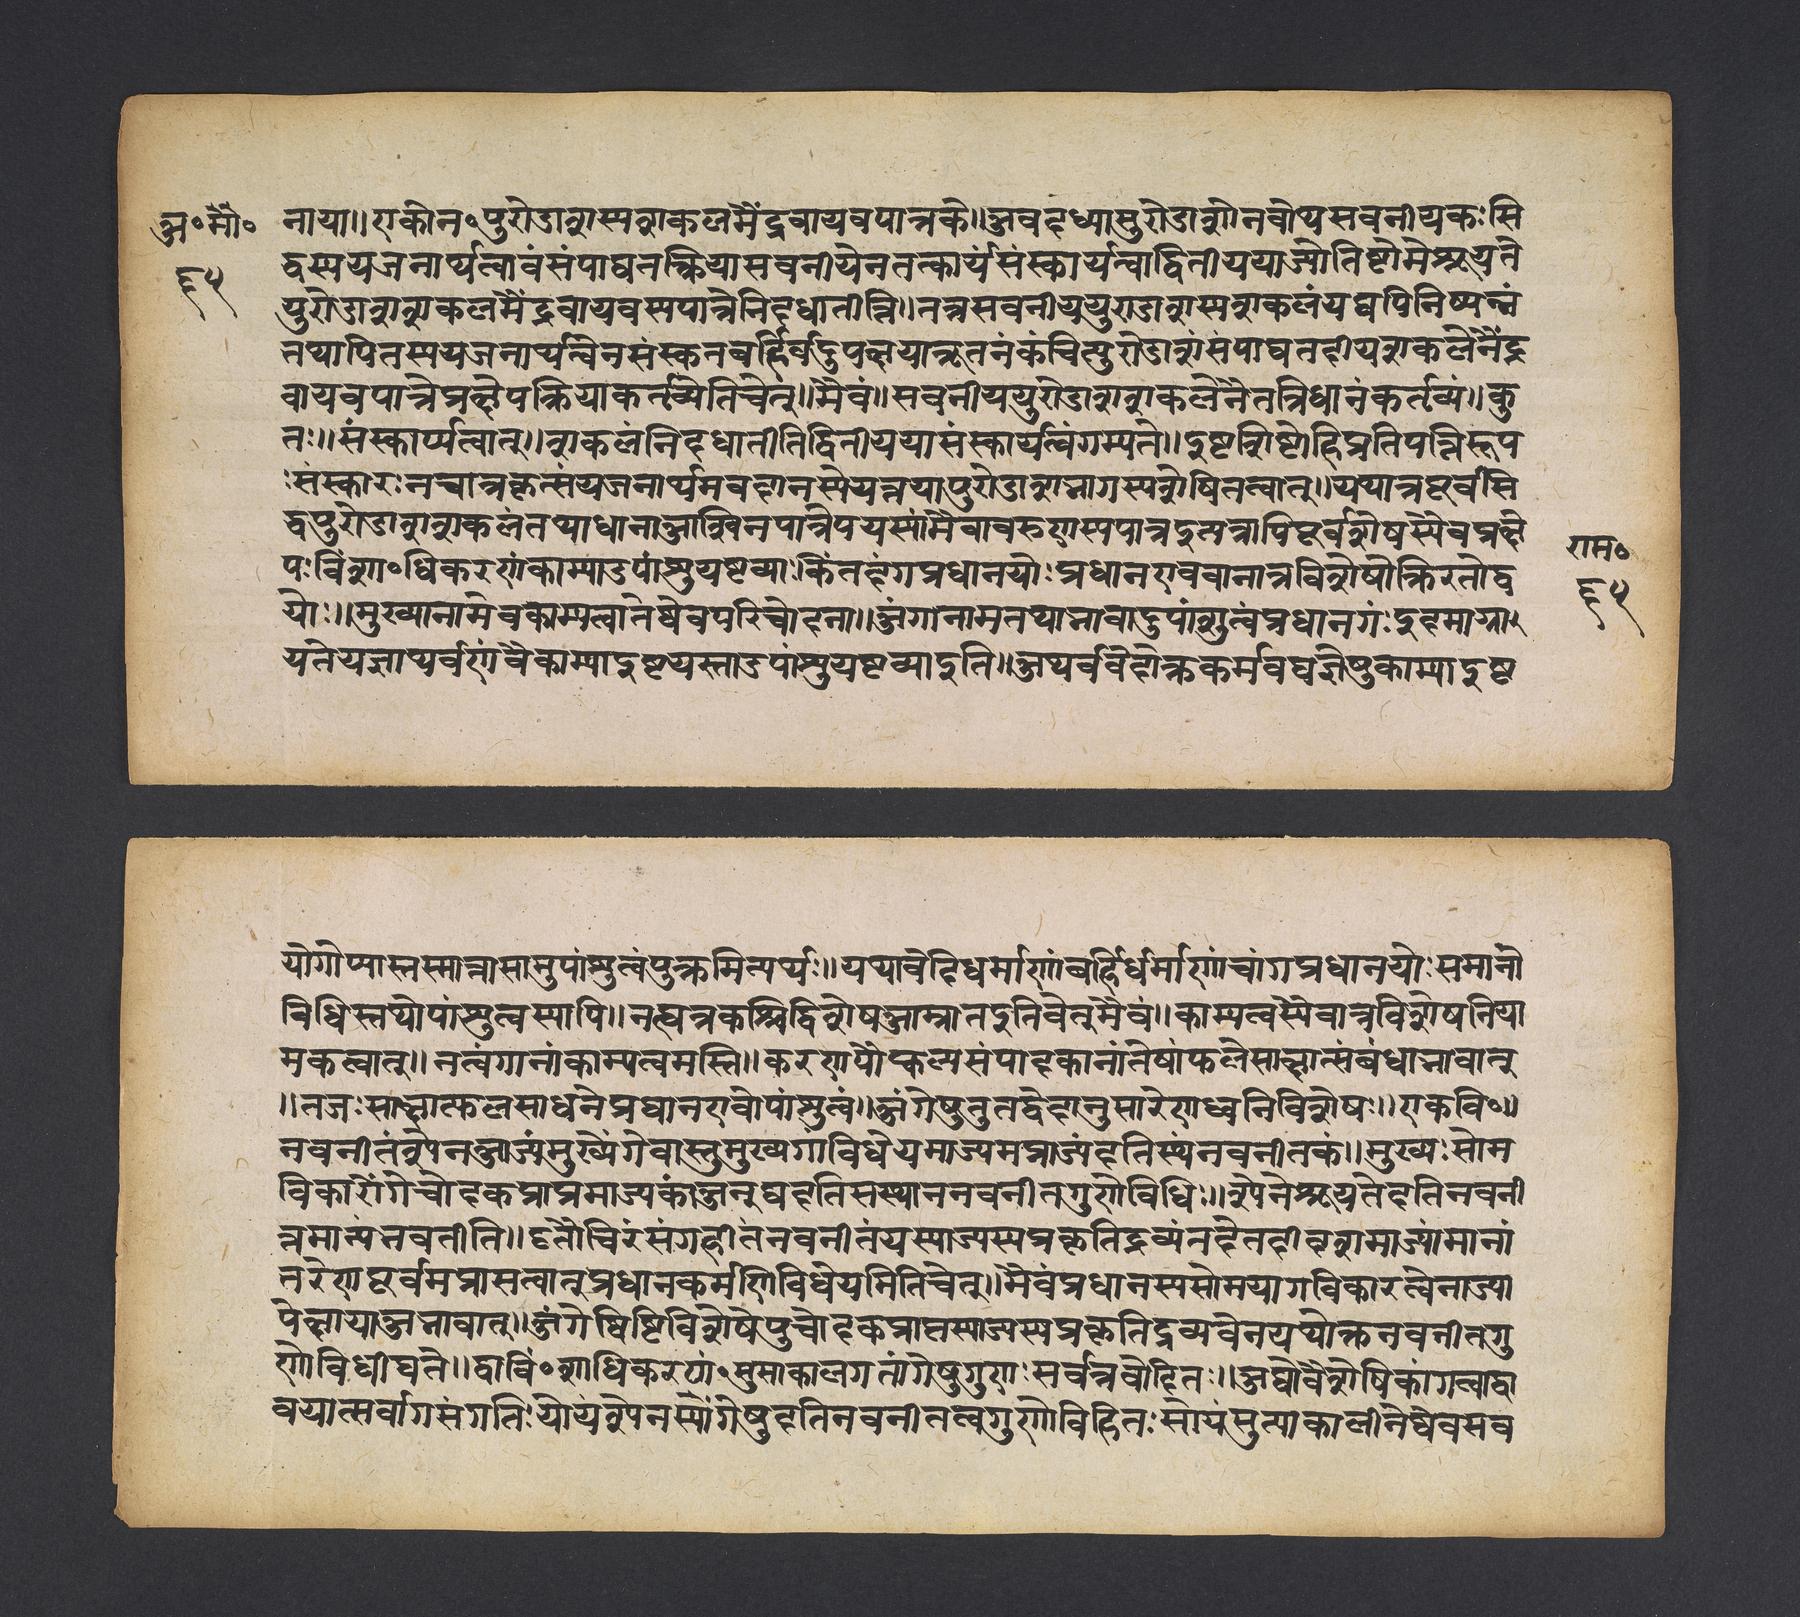 अ॰ मी॰
६५
नाया॥ एकोन॰ पुरोडाशस्य शकलमैंद्रवायवपात्रके॥ अवहध्यासुरोडाशोनवोथसवनीयकः सि
द्धस्य यजनार्थत्वान्नवं संपाद्यनक्रिया सवनीयेनतत्कार्यं संस्कार्यत्वाद्वितीयया ज्योतिष्टोमेश्रूयते
पुरोडाशशकलमैंद्रवायवस्य पात्रेनिदधातीति॥ तत्रसवनीयपुरोडाशसशकलं यद्यपिनिष्पन्नं
तथापितस्य यजनार्थत्वेनसंस्कृत बर्हिर्वदुपक्षयात्रूतनंकंचित्पुरोडाशंसंपाद्यतदीयशकलेनैंद्र
वायवपात्रेप्रक्षेपक्रियाकर्तव्येतिचेत्॥ मैवं॥ सवनीयपुरोडाशशकलेनैतन्निधानंकर्तव्यं॥ कु
तः॥ संस्कार्यत्वात्॥ शकलंनिदधातीतिद्वितीययासंस्कार्यत्वंगम्यते॥ इष्टशिष्टोहिप्रतिपत्तिरूप
ः संस्कारः नचात्रकृत्स्नंयजनार्थमवदानसेयत्तयापुरोडाशभागस्यशेषितत्वात्॥ यथात्रपूर्वसि
द्धपुरोडाशशकलंतथाधानाआश्विनपात्रेपयसांमैत्रावरुणस्यपात्रइत्यत्रापिपूर्वशेषस्यैवप्रक्षे
पः विंशा॰धिकरणंकाम्याउपांशुयष्टव्याः किंतदंगप्रधानयोः प्रधानएववानात्रविशेषोक्तिरतोद्व
योः॥ मुख्यानामेवकाम्यत्वातेषेवपरिचोदना॥ अंगानामतथाभावादुपांशुत्वंप्रधानगंः इदमाम्ना
यतेयज्ञाथर्वणंवैकाम्याइष्टयस्ताउपांशुयष्टव्याइति॥ अथर्ववेदोक्तकर्मवद्यज्ञेषुकाम्याइष्ट
राम॰
६५
योगोप्यास्तस्मात्तासामुपांशुत्वंपुक्तमित्यर्थः॥ यथावेदिधर्माणांबर्हिर्धर्माणांचांगप्रधानयोः समानो
विधिस्तथोपांशुत्वस्यापि॥ नह्यत्रकश्चिद्विशेषआम्नातइतिचेत्मैवं॥ काम्यत्वस्यैवात्रविशेषनिया
मकत्वात्॥ नत्वंगानांकाम्यत्वमस्ति॥ करणपौष्कल्यसंपादकानांतेषांफलेसाक्षात्संबंधाभावात्
॥ तजः साक्षात्फलसाधनेप्रधानएवोपांशुत्वं॥ अंगेषुतुतद्वेदानुसारेणध्वनिविशेषः॥ एकवि॰॥
नवनीतंश्येनआज्यंमुख्येंगेवास्तुमुख्यगांविधेयमाज्यमप्राज्यंदृतिस्थंनवनीतकं॥ मुख्यः सोम
विकारोंगेचोदकप्राप्तमाज्यकंअनूद्यदृतिसंस्थाननवनीतगुणोविधिः॥ श्येनेश्रूयतेदृतिनवनी
तमाज्यंभवतीति॥ दृतौचिरंसंगृहीतंनवनीतंयस्याज्यस्यप्रकृतिद्रव्यंनदेतदीदृशमाज्यंमानां
तरेणपूर्वमप्राप्तत्वात्प्रधानकर्मणिविधेयमितिचेत्॥ मैवंप्रधानस्यसोमयागविकारत्वेनाज्या
पेक्षायाअभावात्॥ अंगेष्विष्टिविशेषेषुचोदकप्राप्तस्याज्यस्यप्रकृतिद्रव्यवेनयथोक्तनवनीतगु
णोविधीयते॥ द्वाविं॰ शाधिकरणं॰ सुसाकालगतांगेषुगुणः सर्वत्रवोदितः॥ अद्योवैशेषिकांगत्वाद्वा
वयात्सर्वांगसंगतिः योयंश्येनस्यांगेषुदृतिनवनीतत्वगुणोविहितः सोयंसुत्याकालीनेष्वेवसव